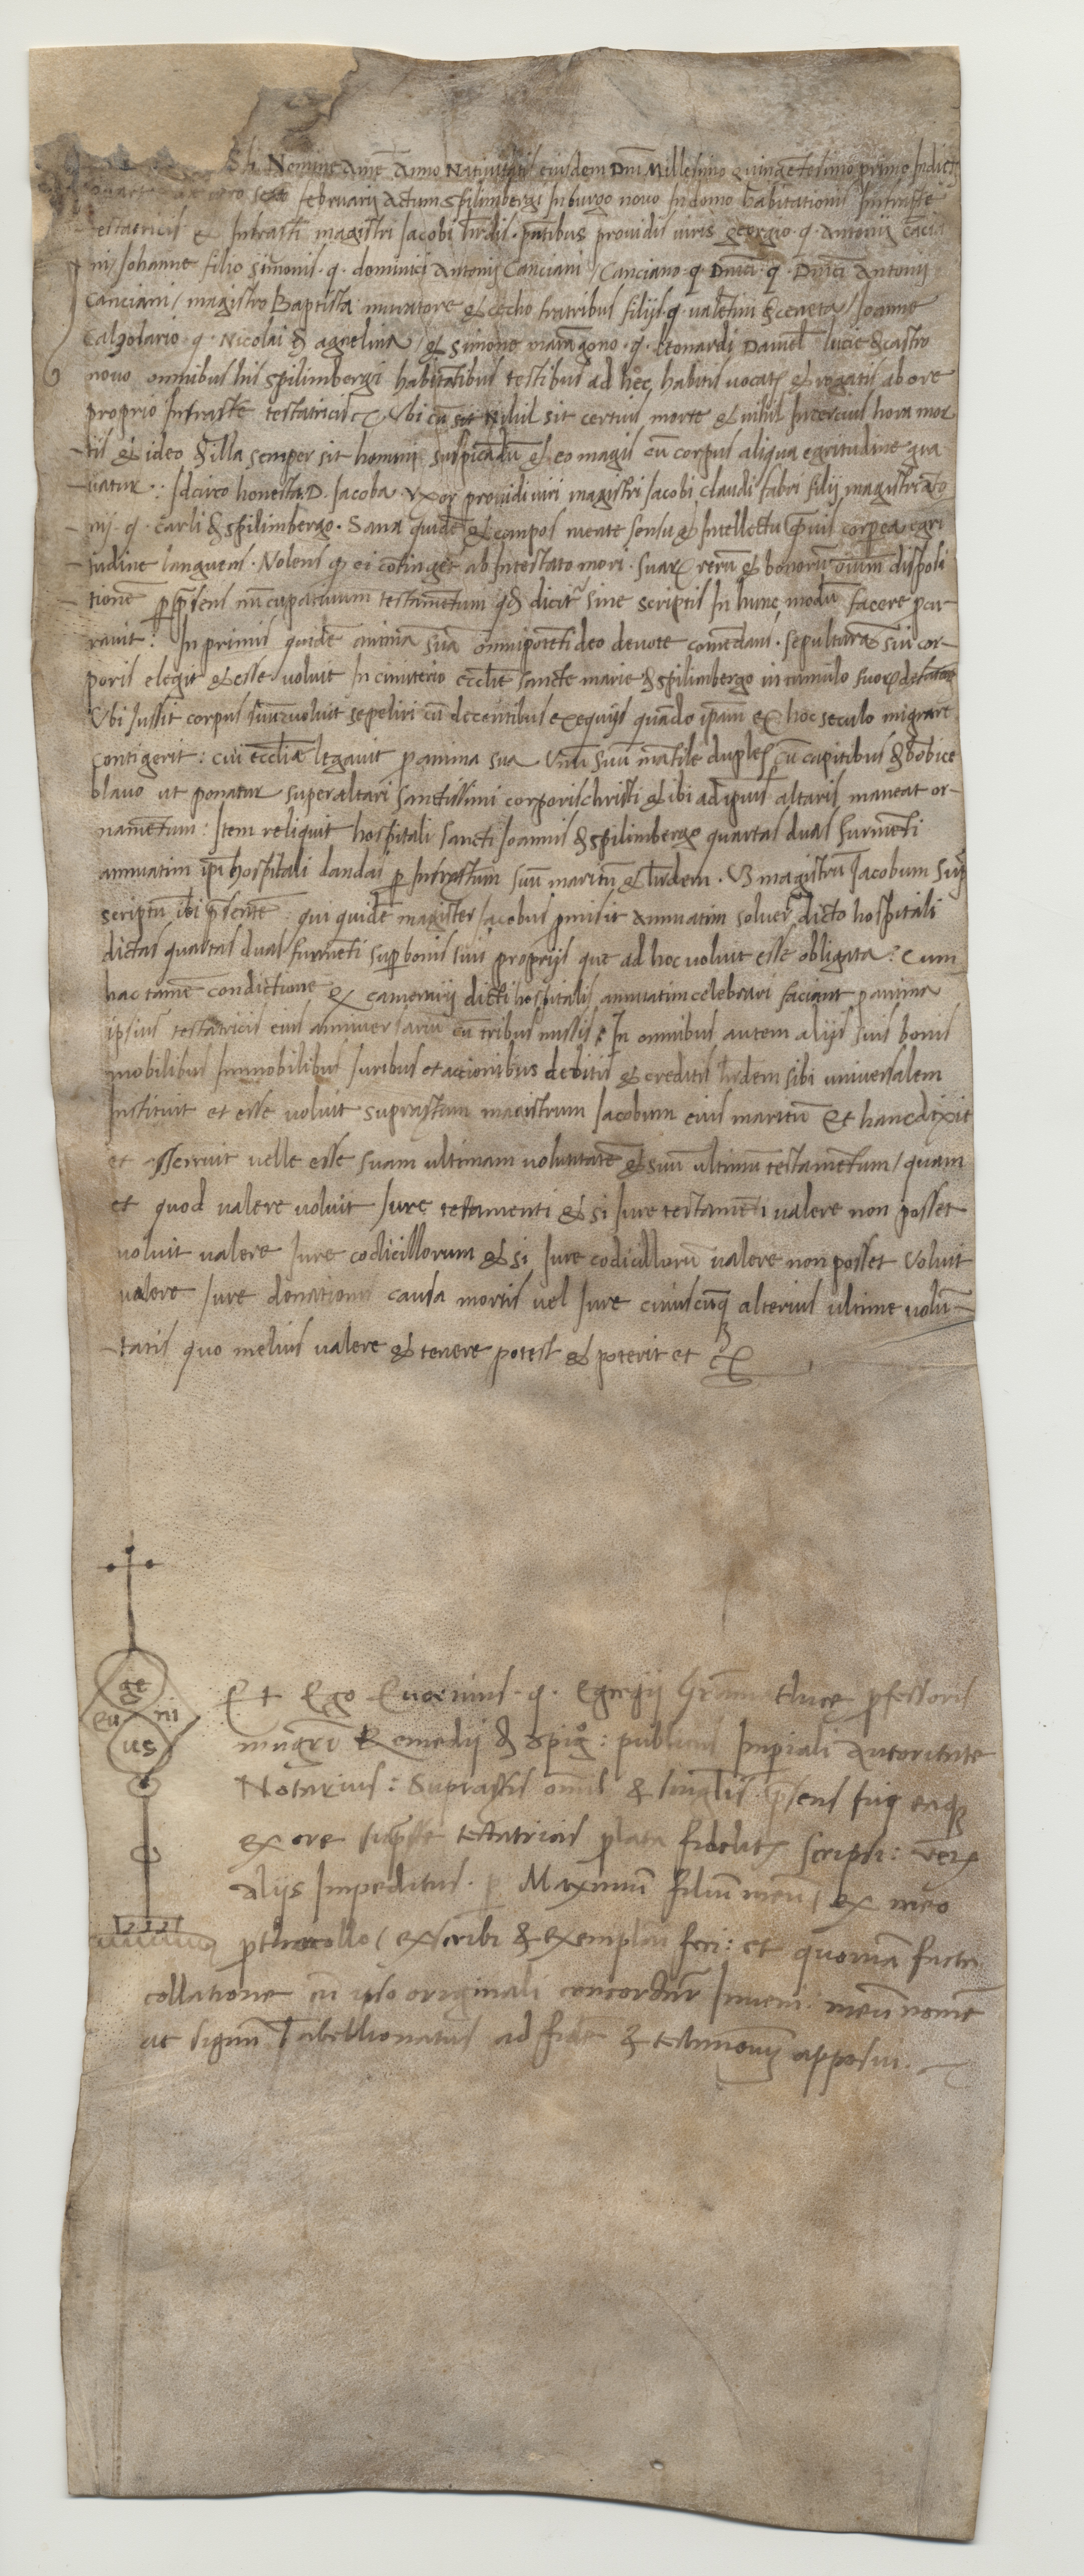 Nomine Amē Anno Nativitatis eiusdem Dnī Millesimo quingētesimo primo Indict
vero sexto februarii Actum spilimbergi In burgo novo In domo habitationis Infraste
testatricis & Infrasti magistri Jacobi hrdis. pntibus providis viris georgio. q. Antonij cācia
ni/ Johanne filio simonis. q. dominici Antonij Canciani / Canciano. q. Dnici. q. Dnici Antonij
Canciani / magistro Baptista muratore & cecho fratribus filijs. q. valētini & ceneta / Joanne
Calzolario. q. Nicolai & / & simone marāgono. q. Leonardi Daniel lucie & castro
novo omnibus his spilimbergi habitātibus testibus ad hec habitis vocatis & rogatis ab ore
proprio Infraste testatricis Ubi cū sit Nihil sit certius morte & nihil Incercius hora mor
tis & ideo & illa semper sit homini suspicādū & eo magis cū corpus aliqua egritudine gra
vatur: Idcirco honesta. D. Jacoba. vxor providi viri magistri Jacobi claudi fabri filij magistri Ato
nij. q. carli & spilimbergo. Sana quidē & compos mente sensu & Intellectu corpea egri
tudine languens. Nolens q ei cōtinget ab Intestato mori. suar rerū & bonorū oium disposi
tionē p psens nūcupativum testamētum qd dicitr sine scriptis In hunc modū facere pcu
ravit: In primis quidē animā suā omnipotēti deo devote comēdavit. sepulturā sui cor-
poris elegit & esse voluit In cimiterio ecclie sancte marie & spilimbergo in tumulo suor
Ubi Jussit corpus suum voluit sepeliri cū decentibus exequijs quādo ipam ex hoc seculo migrare
contigerit: cui ecclie legavit p anima sua Unū suū mātile duplex cū capitibus & bōbice
blavo ut ponatur super altari sanctissimi corporis christi & ibi ad ipius altaris maneat or-
namētum: Item reliquit hospitali sancti Joannis & spilimbergo quartas duas furmēti
annuatim ipi hospitali dandas p Infrastum suū maritū & hrdem. Vz magistrū Jacobum sup
scriptū ibi psentē: qui quidē magister Jacobus pmisit annuatim solver dicto hospitali
dictas quartas duas furmēti sup bonis suis proprijs que ad hoc voluit esse obligata: Cum
hac tamē condictione & camerarij dicti hospitalis annuatim celebrari faciant p anima
ipsius testatricis eius anniversariū cū tribus missis: In omnibus autem alijs suis bonis
mobilibus Immobilibus Juribus et actionibus debitis & creditis hrdem sibi universalem
Instituit et esse voluit suprastum magistrum Jacobum eius maritū Et hanc dixit
et asseruit velle esse suam ultimam voluntatē & suū ultimū testamētum / quam
et quod valere voluit Jure testamenti & si Jure testamēti valere non posset
voluit valere Jure codicillorum & si Jure codicillorū valere non posset Voluit
valere Jure donationis causa mortis vel Jure cuiuscūq alterius ultime volū-
-tatis quo melius valere & tenere potest & poterit et
ge
eu ni
us
Et Ego Eugenius. q. Egregij Grāmaticę pfessoris
magri Remedij & spig: publicus Impiali Autoritate
Notarius: Suprastis omīb & singulis psens fui eaq
ex ore supste testatricis plata fidelitr scripsi: verū
alijs Impeditus. p Maximū filiū meū / ex meo
pthocollo / exscribi & exemplari feci: et quoniā facta
collatione cū ipso originali concordar Inveni. meū nomē
ac signū Tabellionatus ad fidē & testimoniū apposui.